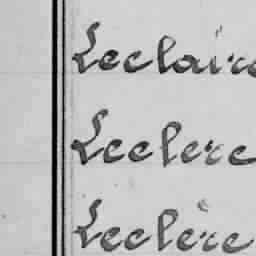 Leclaire
Leclerc
Leclère